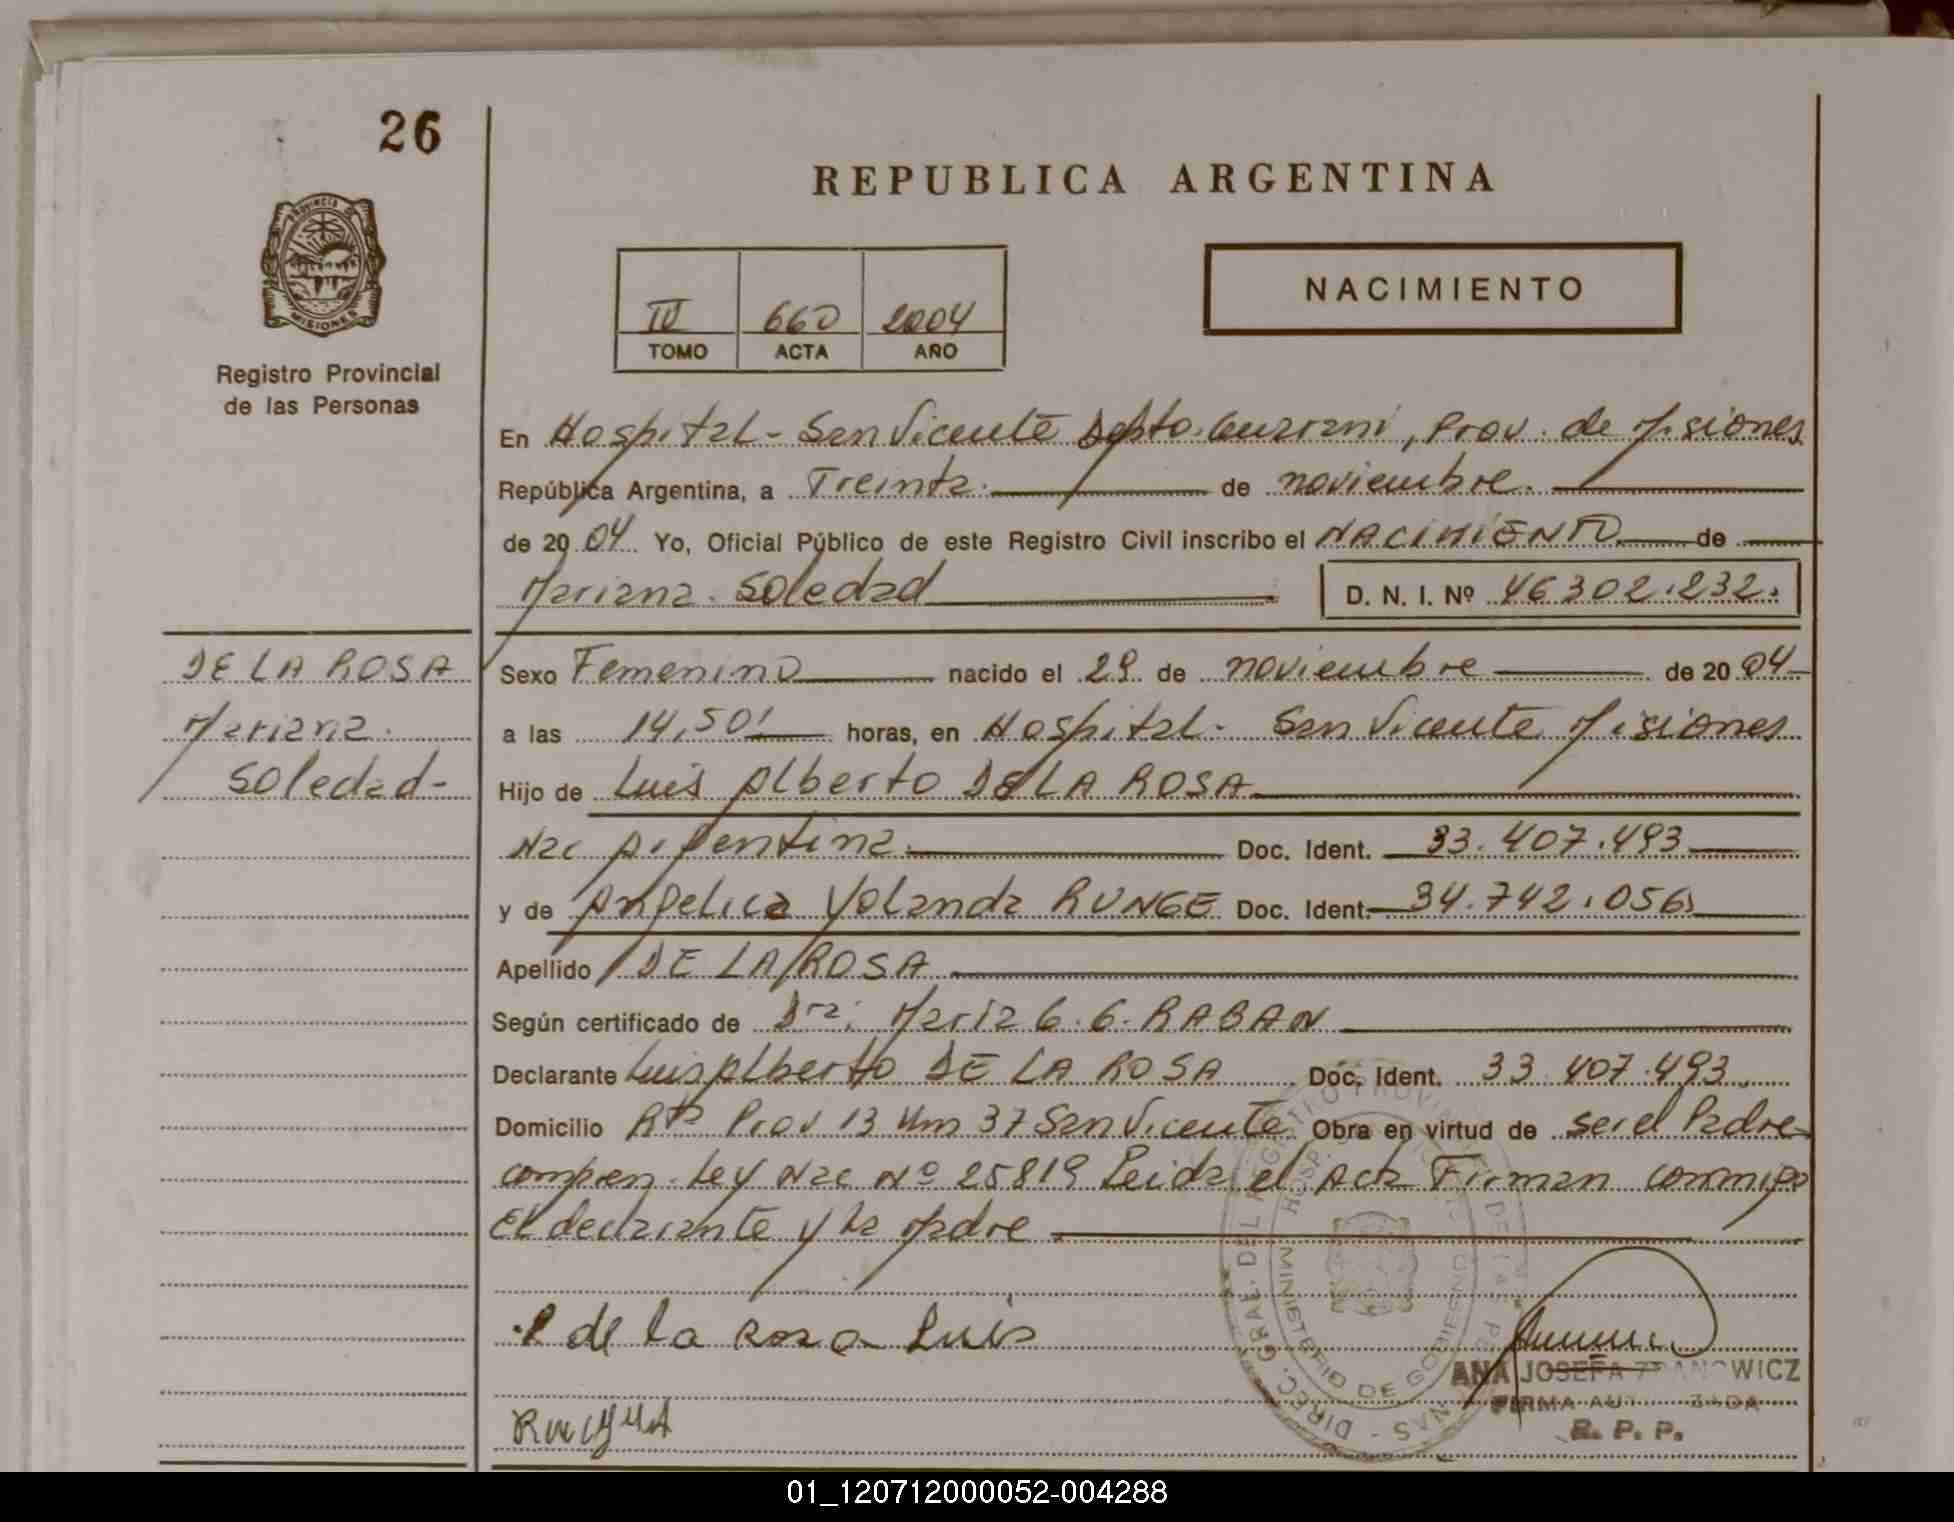 26
REPUBLICA ARGENTINA
PROVINCIA DE
MISIONES
Registro Provincial
de las Personas
IV 660 2004
TOMO ACTA AÑO
NACIMIENTO
En Hospital - San Vicente Dpto. Guarani, Prov. de Misiones
República Argentina, a Treinta. de noviembre.
de 2004 Yo, Oficial Público de este Registro Civil inscribo el NACIMIENTO de
Mariana Soledad D. N. I. Nº 46302.232.
DE LA ROSA
Mariana
Soledad-
Sexo Femenino nacido el 29 de noviembre de 2004
a las 14,50' horas, en Hospital - San Vicente Misiones
Hijo de Luis Alberto DE LA ROSA
Nac Argentina Doc. Ident. 33.407.493
y de Angelica Yolanda RUNGE Doc. Ident. 34.742.056
Apellido DE LA ROSA
Según certificado de Dra: Maria G. G. RABAN
Declarante Luis Alberto DE LA ROSA Doc. Ident. 33.407.493
Domicilio Rta Prov 13 Km 37 San Vicente Obra en virtud de ser el Padre
compren. Ley Nac Nº 25819 Leida el Acta Firman conmigo
El declarante y la Madre
de la Rosa Luis
ANA JOSEFA
FIRMA
R. P. P.
DIREC. GRAL. DEL REGISTRO PROVINCIAL DE LAS PERSONAS
MINISTERIO DE GOBIERNO
HOSP.
01_120712000052-004288